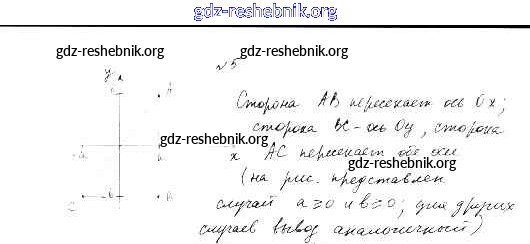 gdz-reshebnik.org
gdz-reshebnik.org
gdz-reshebnik.org
№5
y
A
Сторона AB пересекает ось Ox;
сторона BC - ось Oy, сторона
gdz-reshebnik.org
x
AC пересекает обе оси
gdz-reshebnik.org
(на рис. представлен
C
B
случай a≥0 и b≥0; для других
случаев вывод аналогичный)